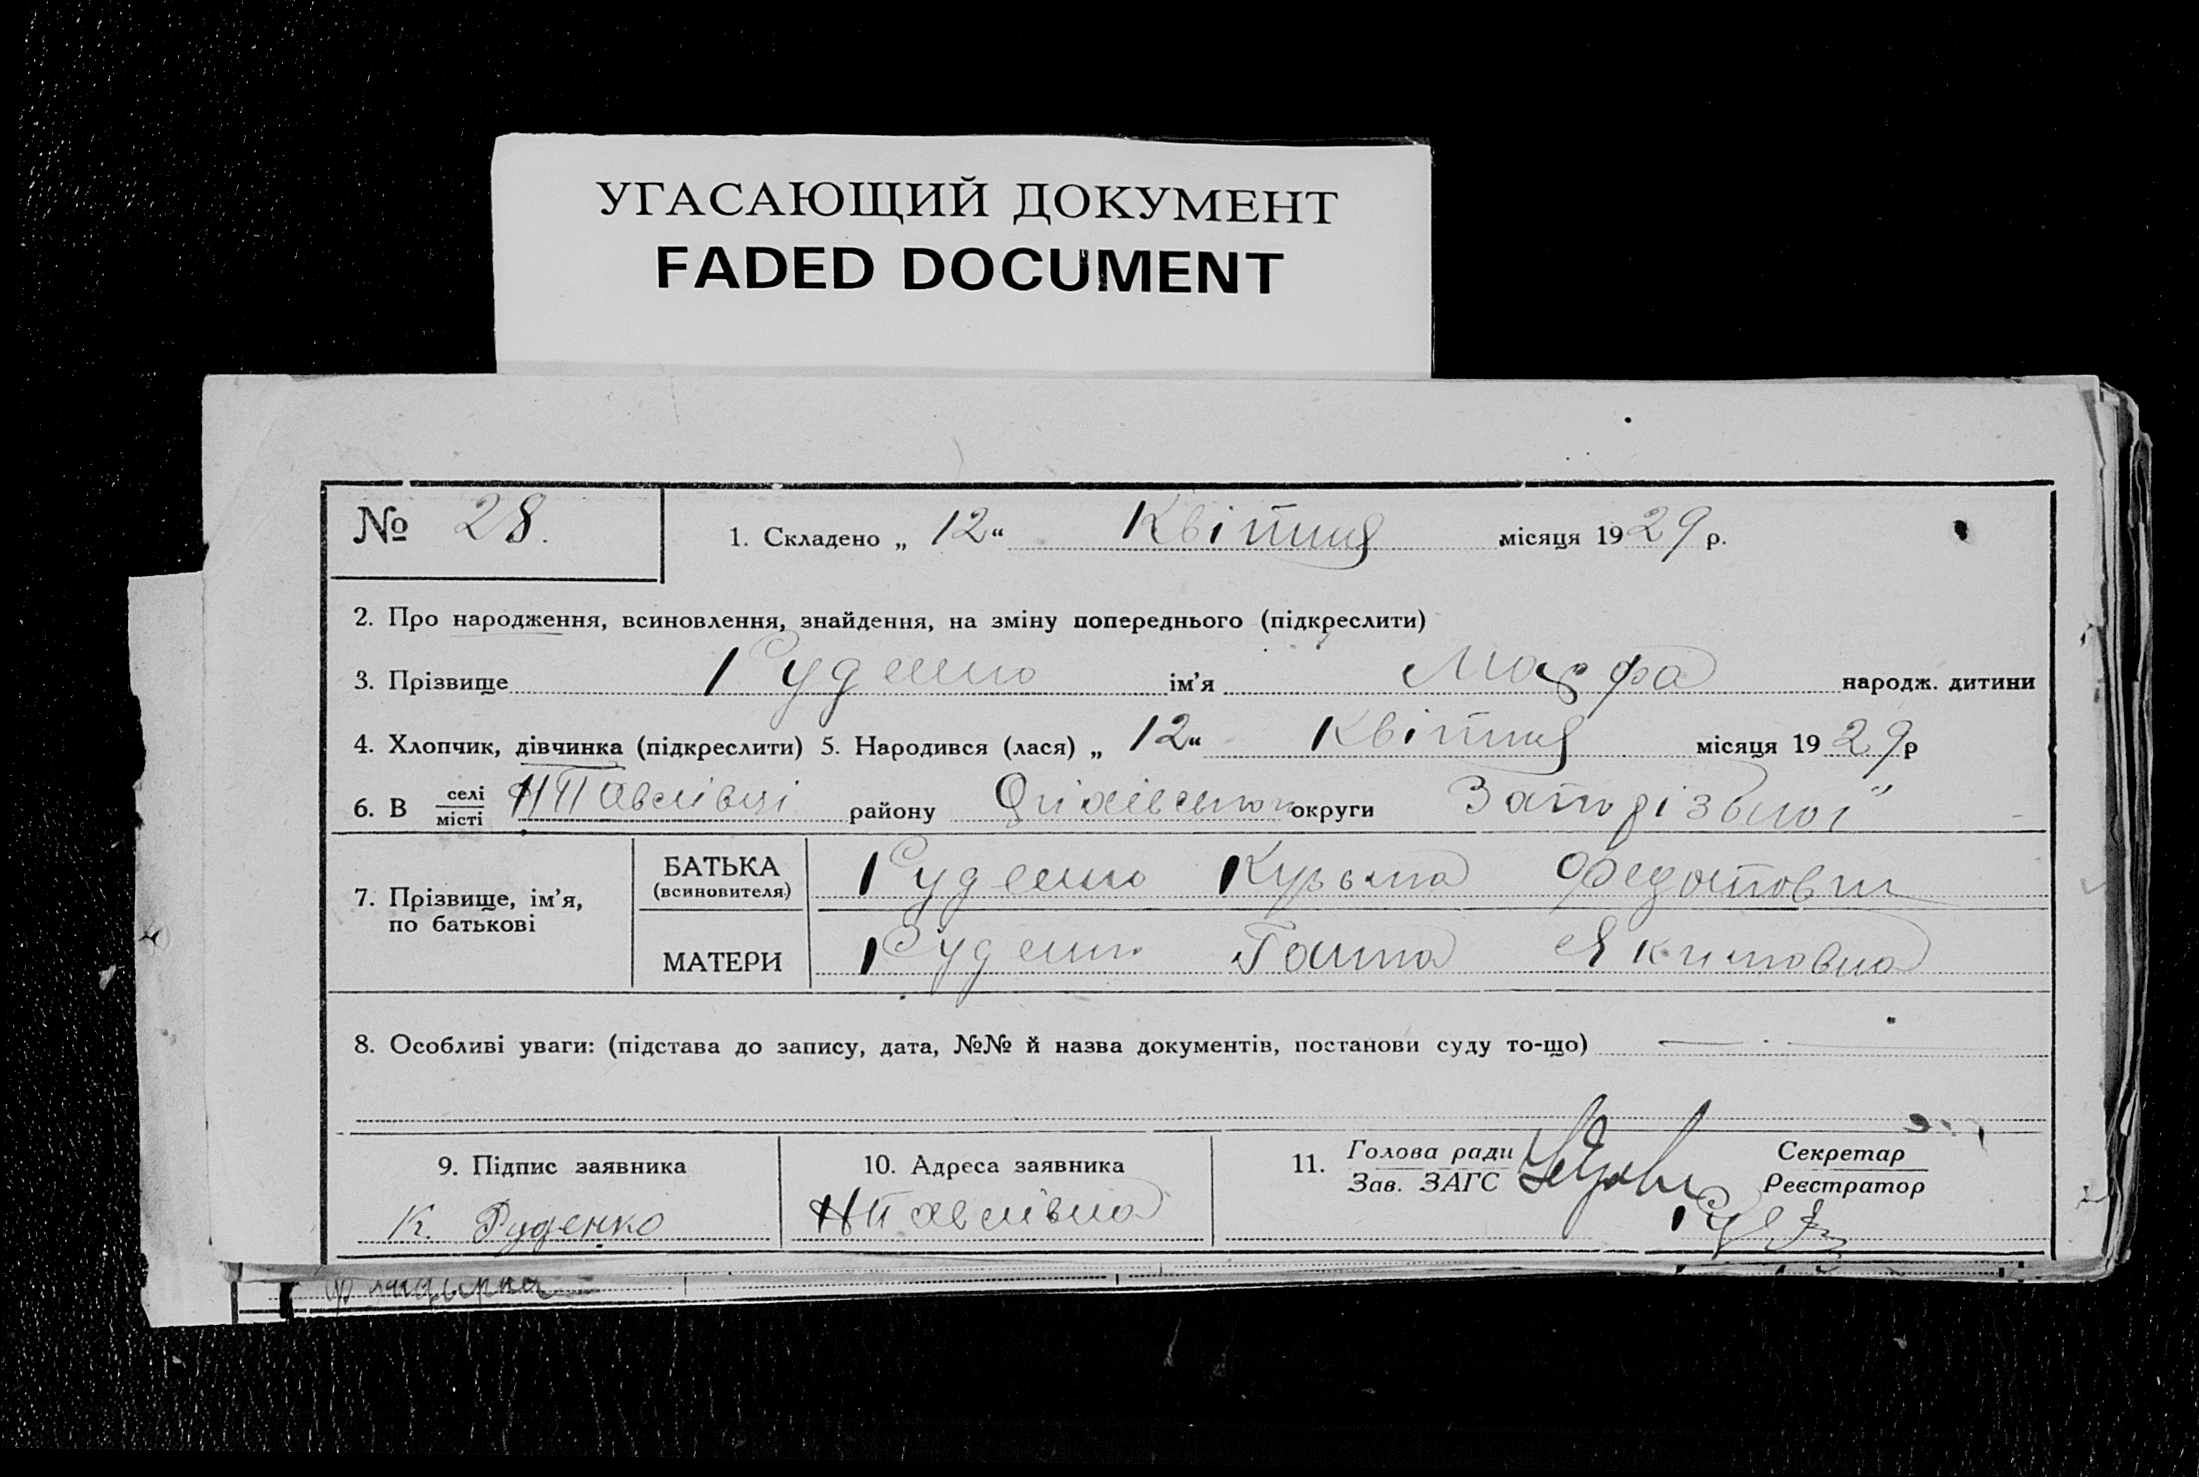 УГАСАЮЩИЙ ДОКУМЕНТ
FADED DOCUMENT
№ 28. 1. Складено „ 12 “ Квітня місяця 1929 р.
2. Про народження, всиновлення, знайдення, на зміну попереднього (підкреслити)
3. Прізвище Руденко ім’я Марфа народж. дитини
4. Хлопчик, дівчинка (підкреслити) 5. Народився (лася) „ 12 “ Квітня місяця 1929 р
6. В селі Н Павлівці району округи Запорізької
місті
7. Прізвище, ім’я, по батькові
БАТЬКА (всиновителя) Руденко Кузьма Федотович
МАТЕРИ Руденко Ганна Якимовна
8. Особливі уваги: (підстава до запису, дата, №№ й назва документів, постанови суду то-що)
9. Підпис заявника 10. Адреса заявника 11. Голова ради Секретар
Зав. ЗАГС Реєстратор
К. Руденко Н Павлівка